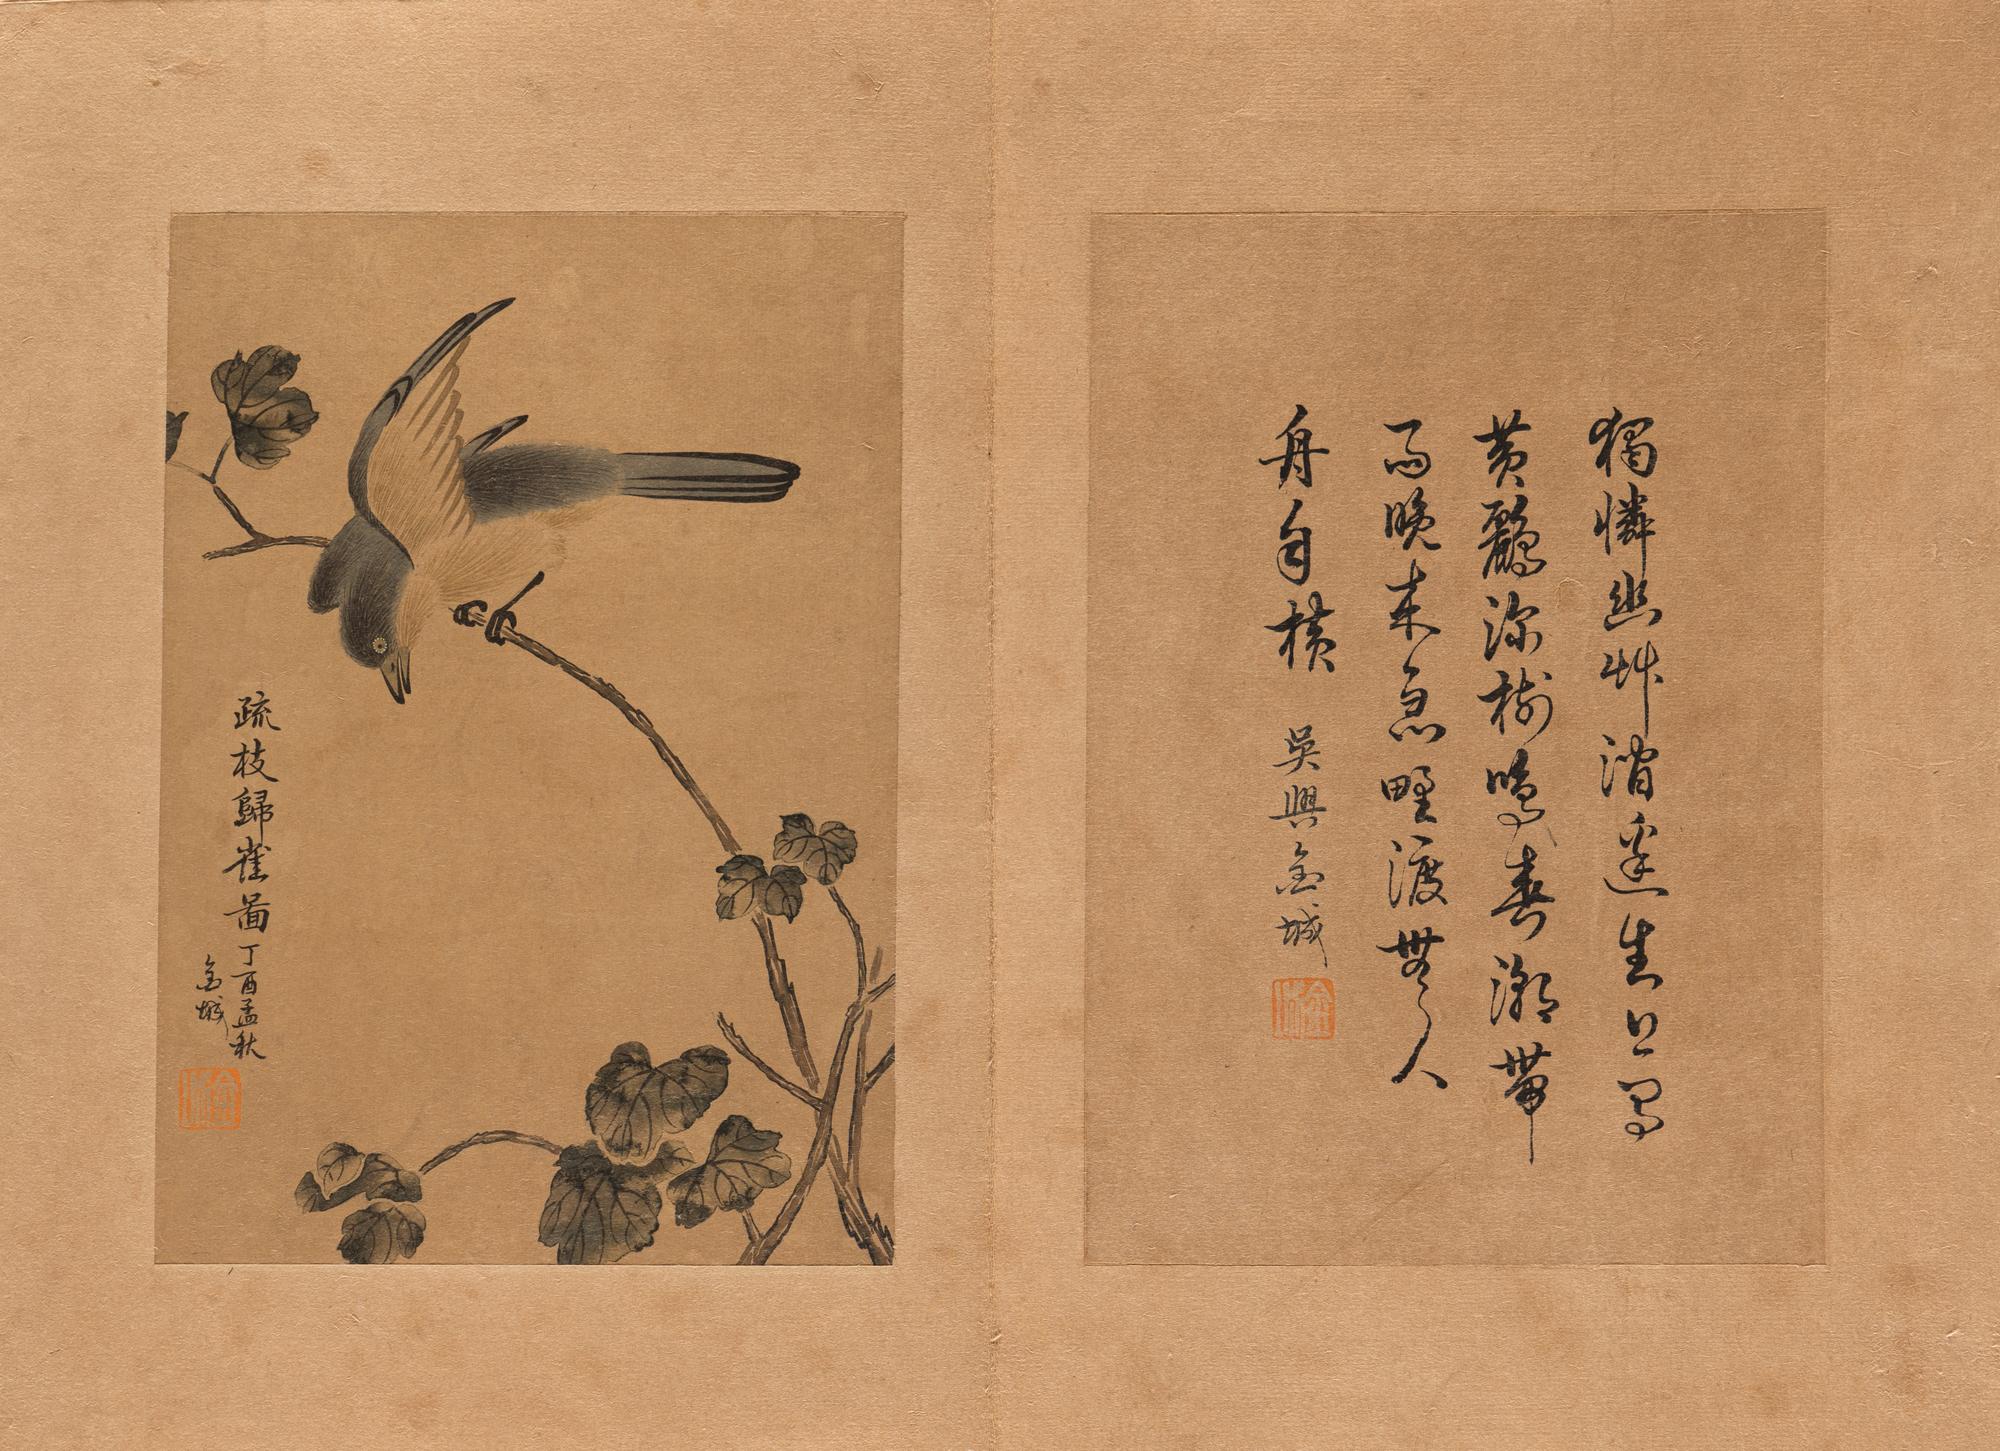 獨憐幽艸澗邊生上有
黃鸝深樹鳴春潮帶
雨晚來急野渡無人
舟自橫 吳興金城
金城
疏枝歸雀圖丁酉孟秋
金城
金城